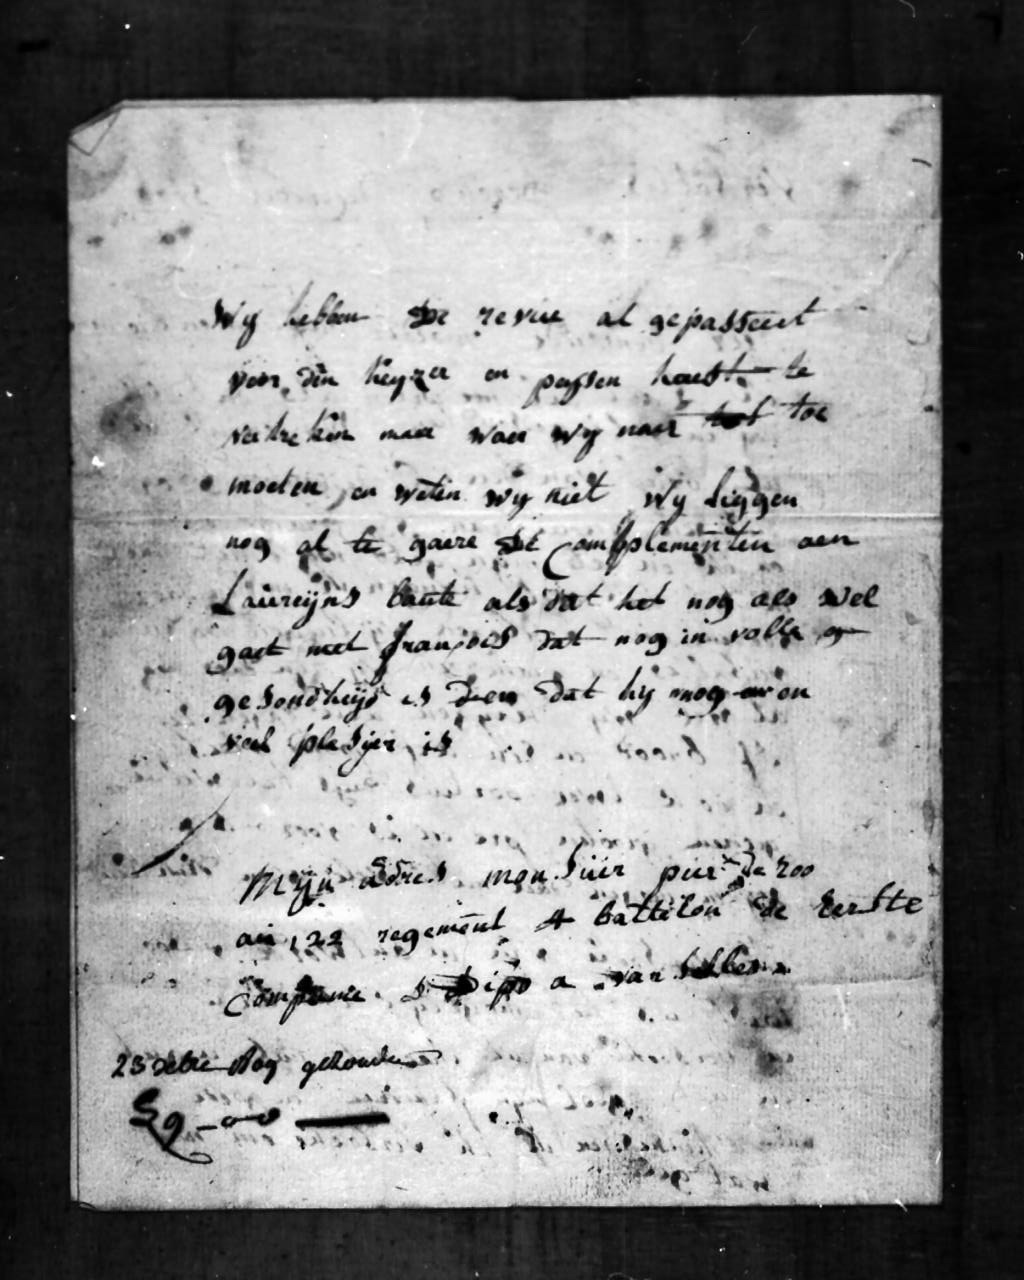 Wy hebben de revue al gepasseert
voor den keyzer en peysen haest te
vertrekken maer waer wy naer toe
moeten en weten wy niet wy liggen
nog al te gaere de Complementen aen
Laureijns baute als dat het nog als wel
gaet met françois dat nog in volle g
gesondheijd is den dat hy nog en
veel plesijer is
Mijn adres monsuir pier de roo
au 122 regement 4 battilon de Eerste
Compenie Dipo a varsellen
23 debre nog gehouden